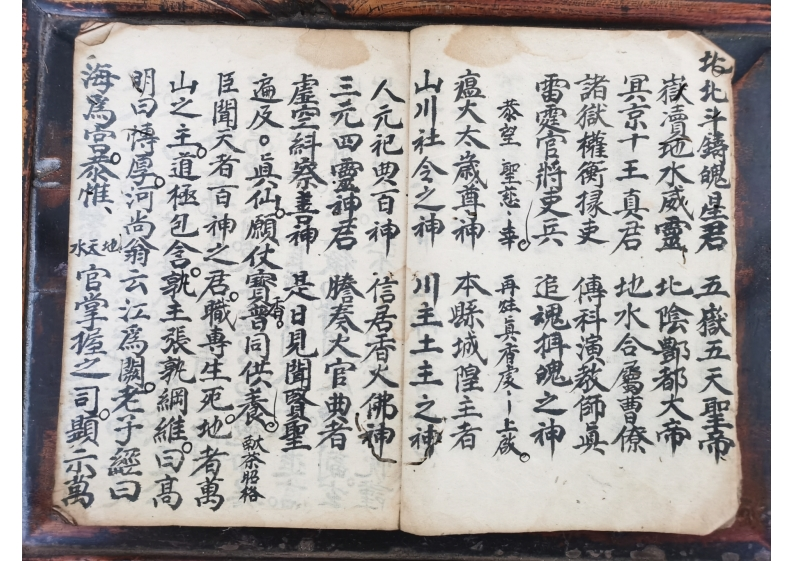 北斗鑄魄星君　五嶽五天聖帝
嶽瀆地水威靈　北陰酆都大帝
冥京十王真君　地水合屬曹僚
諸獄權衡掾吏　傳科演教師眞
雷霆官將吏兵　追魂攝魄之神
恭望　聖慈〻幸。　再炷真香虔〻上啟。
瘟火太歲尊神　本縣城隍主者
山川社令之神　川主土主之神
人元祀典百神　信居香火佛神
三元四靈神君　騰奏火官典者
虛空糾察善神　是日見聞賢聖
遍及。眞仙。願仗寶香。普同供養。献茶昭格
臣聞天者百神之君。職專生死。地者萬
山之主。道極包含。孰主張孰綱維。曰高
明曰博厚。河尚翁云江爲闕。老子經曰
海爲宫。恭惟、
天地水官掌握之司。顯示萬